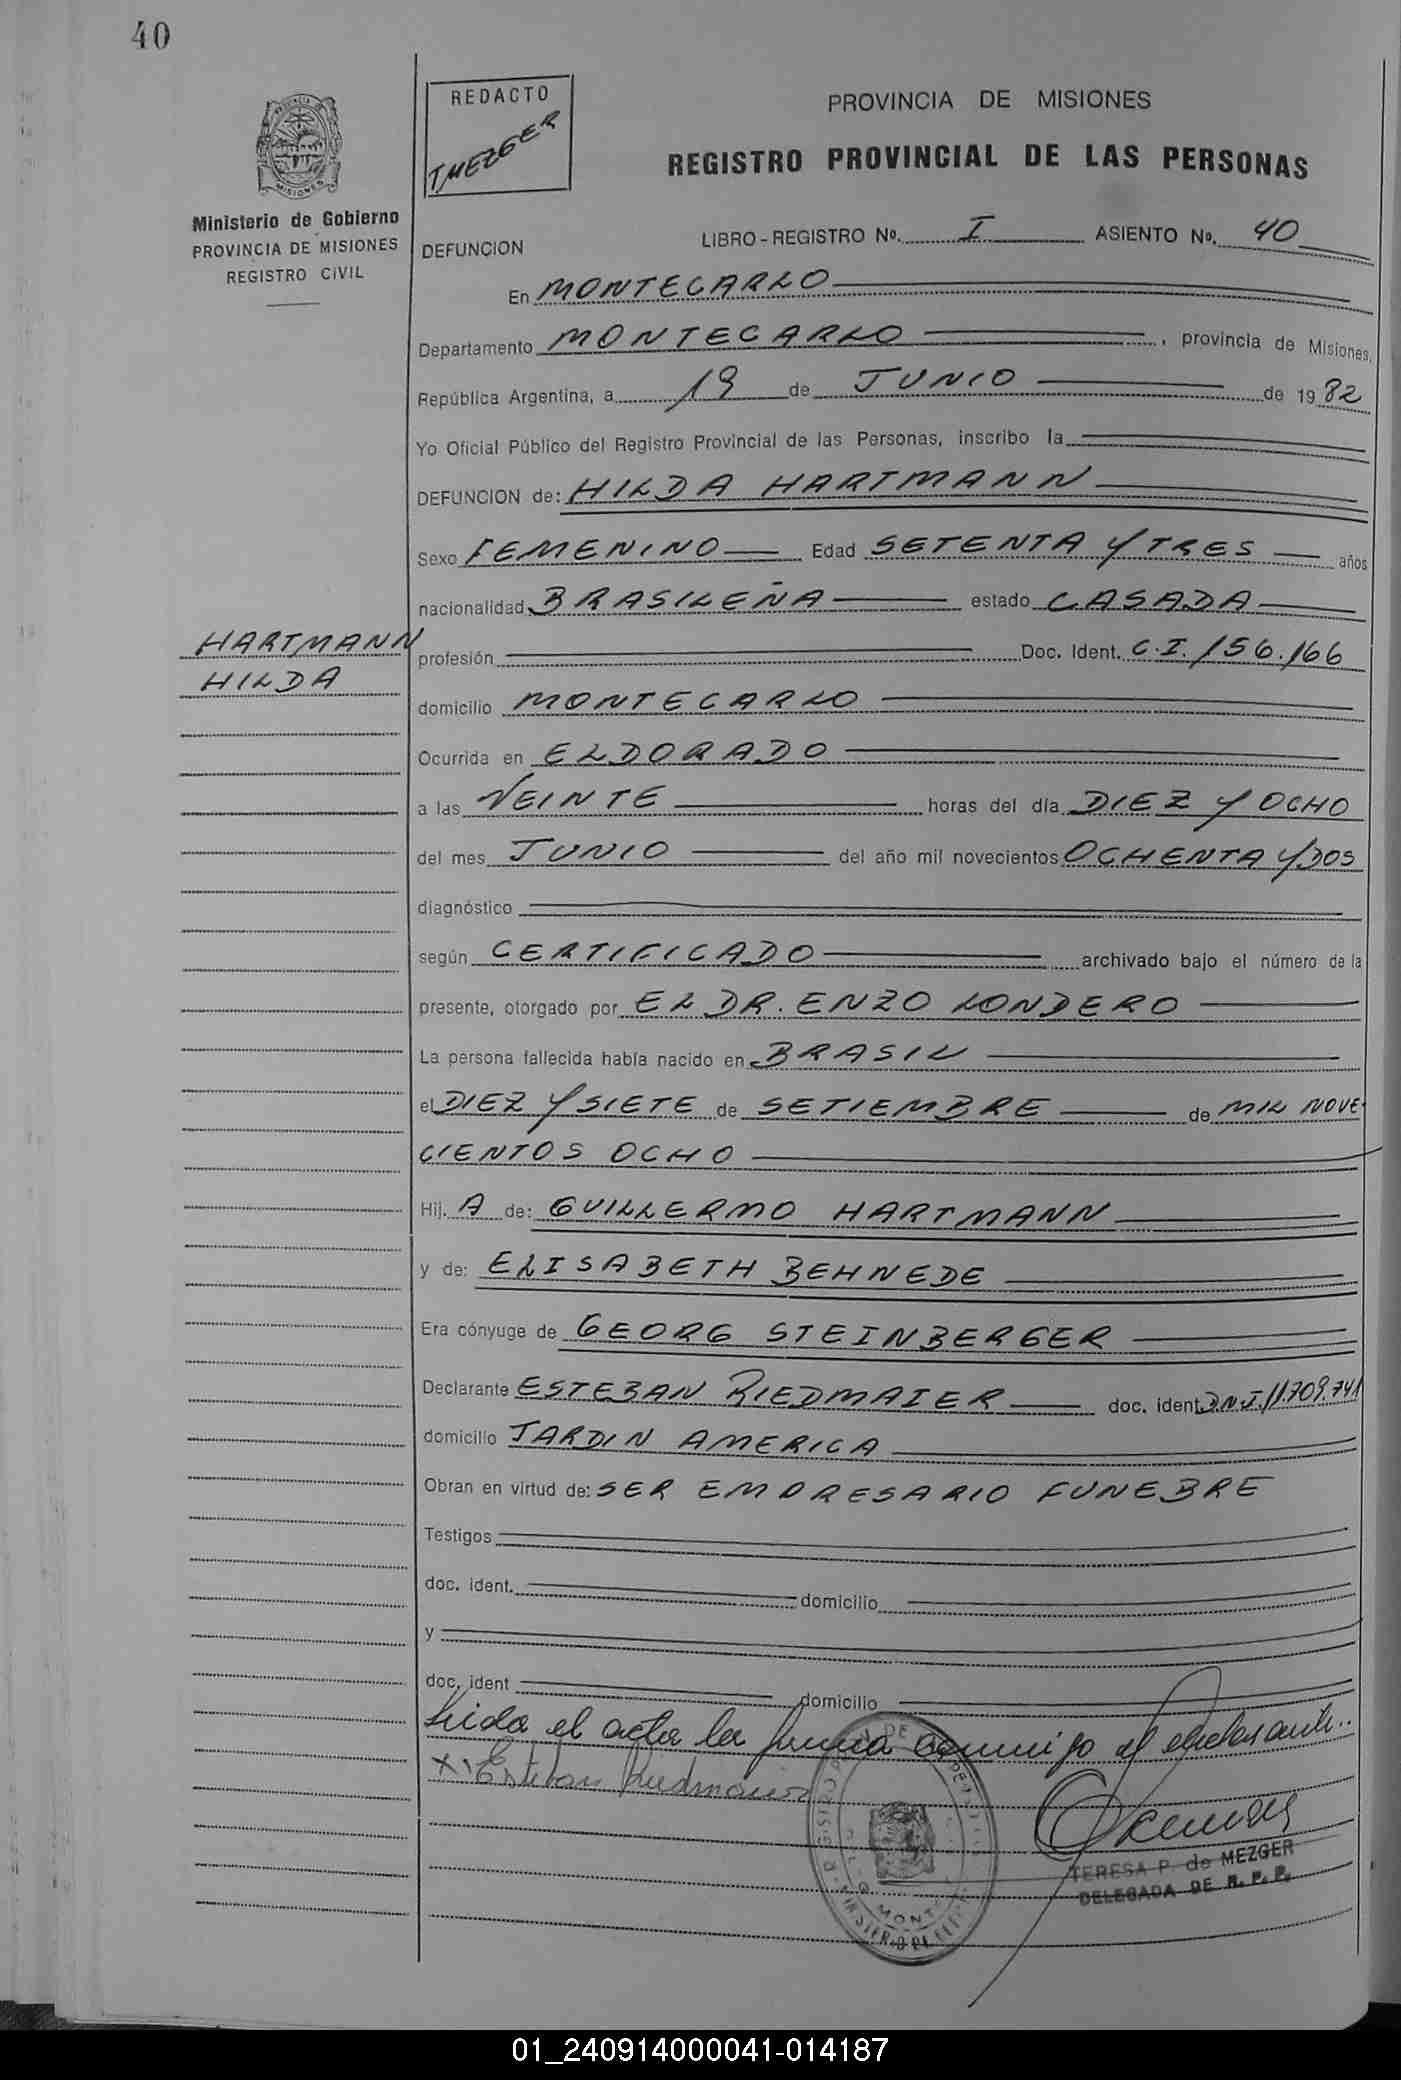 40
REDACTO
T MEZGER
PROVINCIA DE MISIONES
REGISTRO PROVINCIAL DE LAS PERSONAS
PROVINCIA DE
MISIONES
Ministerio de Gobierno
PROVINCIA DE MISIONES
REGISTRO CIVIL
DEFUNCION
LIBRO - REGISTRO Nº. I ASIENTO Nº. 40
En MONTECARLO
Departamento MONTECARLO, provincia de Misiones,
República Argentina, a 19 de JUNIO de 19 82
Yo Oficial Público del Registro Provincial de las Personas, inscribo la
DEFUNCION de: HILDA HARTMANN
Sexo FEMENINO Edad SETENTA Y TRES años
nacionalidad BRASILEÑA estado CASADA
HARTMANN
HILDA
profesión Doc. Ident. C.I. 156.166
domicilio MONTECARLO
Ocurrida en ELDORADO
a las VEINTE horas del día DIEZ Y OCHO
del mes JUNIO del año mil novecientos OCHENTA Y DOS
diagnóstico
según CERTIFICADO archivado bajo el número de la
presente, otorgado por EL DR. ENZO LONDERO
La persona fallecida había nacido en BRASIL
el DIEZ Y SIETE de SETIEMBRE de MIL NOVE-
CIENTOS OCHO
Hij. A de: GUILLERMO HARTMANN
y de: ELISABETH BEHNEDE
Era cónyuge de GEORG STEINBERGER
Declarante ESTEBAN RIEDMAIER doc. ident. D.N.I. 11.709.741
domicilio JARDIN AMERICA
Obran en virtud de: SER EMPRESARIO FUNEBRE
Testigos
doc. ident. domicilio
y
doc. ident domicilio
Leida el acta la firma conmigo el declarante..
x. Esteban Riedmaier
TERESA P. de MEZGER
DELEGADA DE R. P. P.
01_240914000041-014187